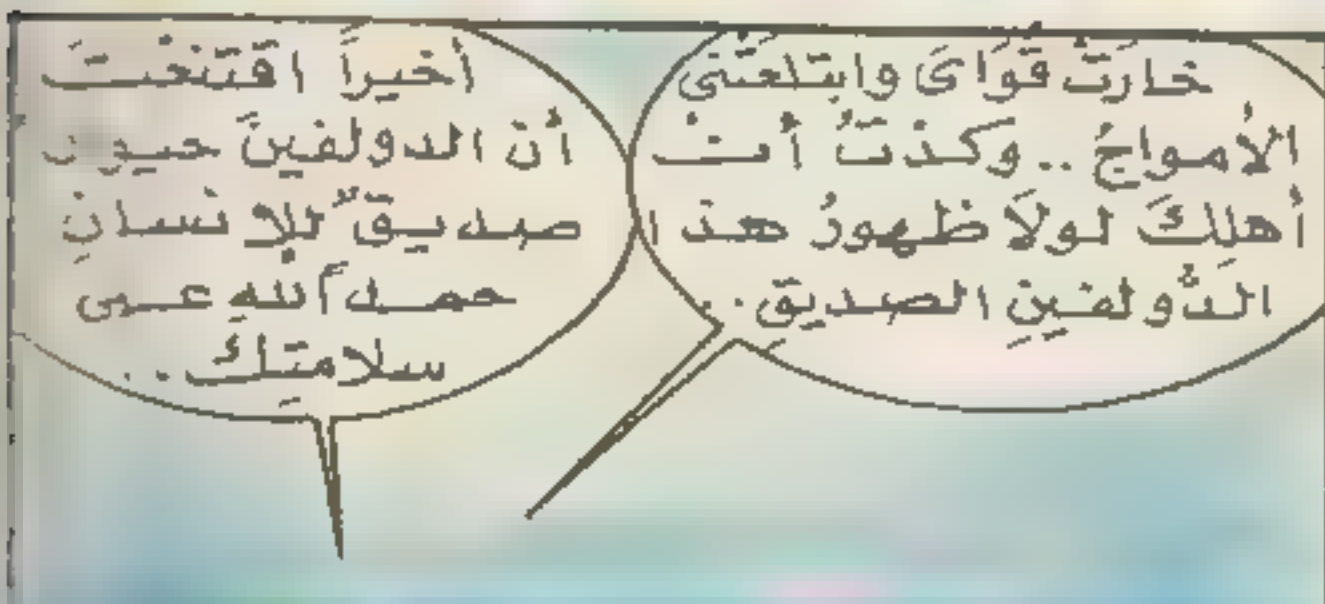 خارَتْ قُوَاىَ وابتَلَعَتْنى
الأمواجُ .. وَكِدْتُ أنْ
أهلِكَ لولاَ ظهورُ هذا
الدُّولفينِ الصديقِ ..
أخيراً اقتَنَعْتَ
أنَّ الدولفينَ حيوان
صديقٌ للإنسانِ
حمداً للهِ على
سلامتِكَ ..